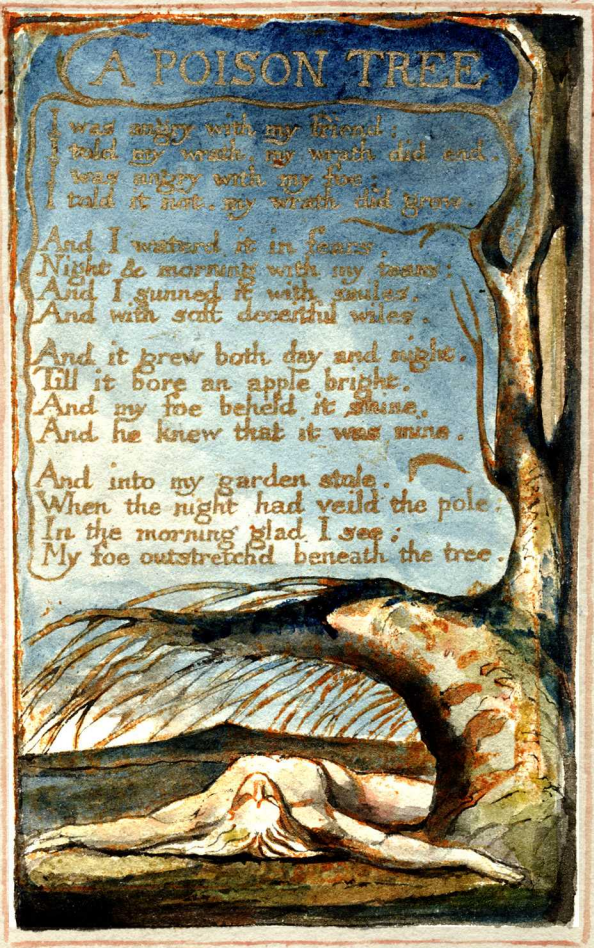 A POISON TREE
I was angry with my friend;
I told my wrath, my wrath did end.
I was angry with my foe:
I told it not, my wrath did grow.
And I waterd it in fears,
Night & morning with my tears:
And I sunned it with smiles,
And with soft deceitful wiles.
And it grew both day and night.
Till it bore an apple bright.
And my foe beheld it shine,
And he knew that it was mine.
And into my garden stole.
When the night had veild the pole;
In the morning glad I see;
My foe outstretchd beneath the tree.